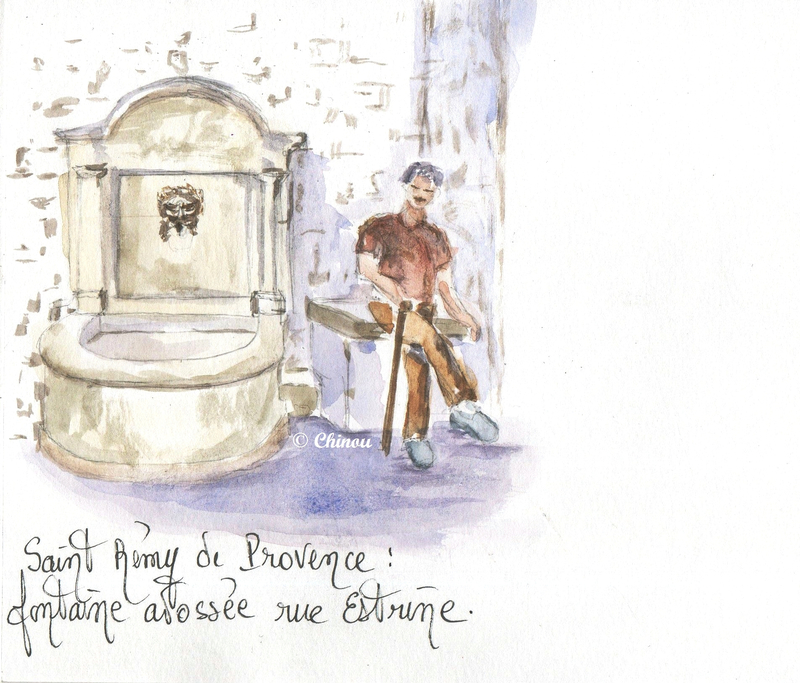 © Chinou
Saint Rémy de Provence :
fontaine adossée rue Estrine.